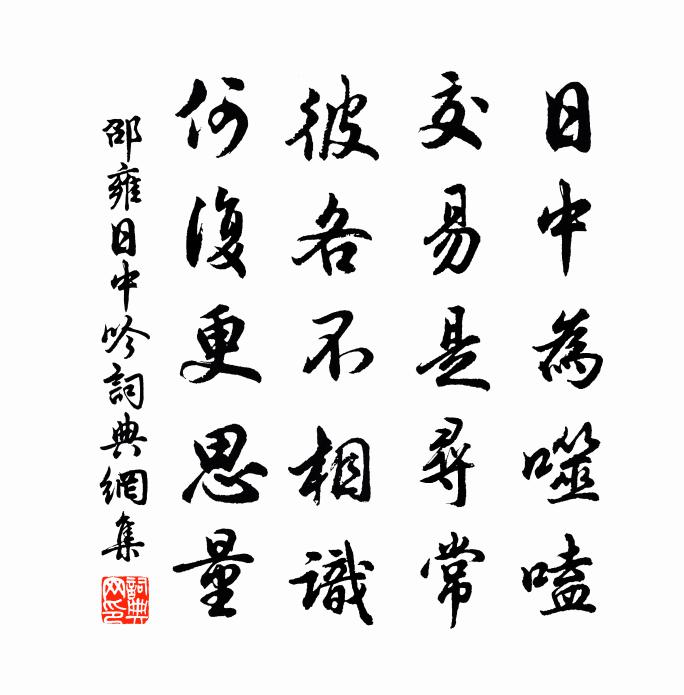 日中為噬嗑
交易是尋常
彼各不相識
何復更思量
邵雍日中吟詞典網集
詞典网印